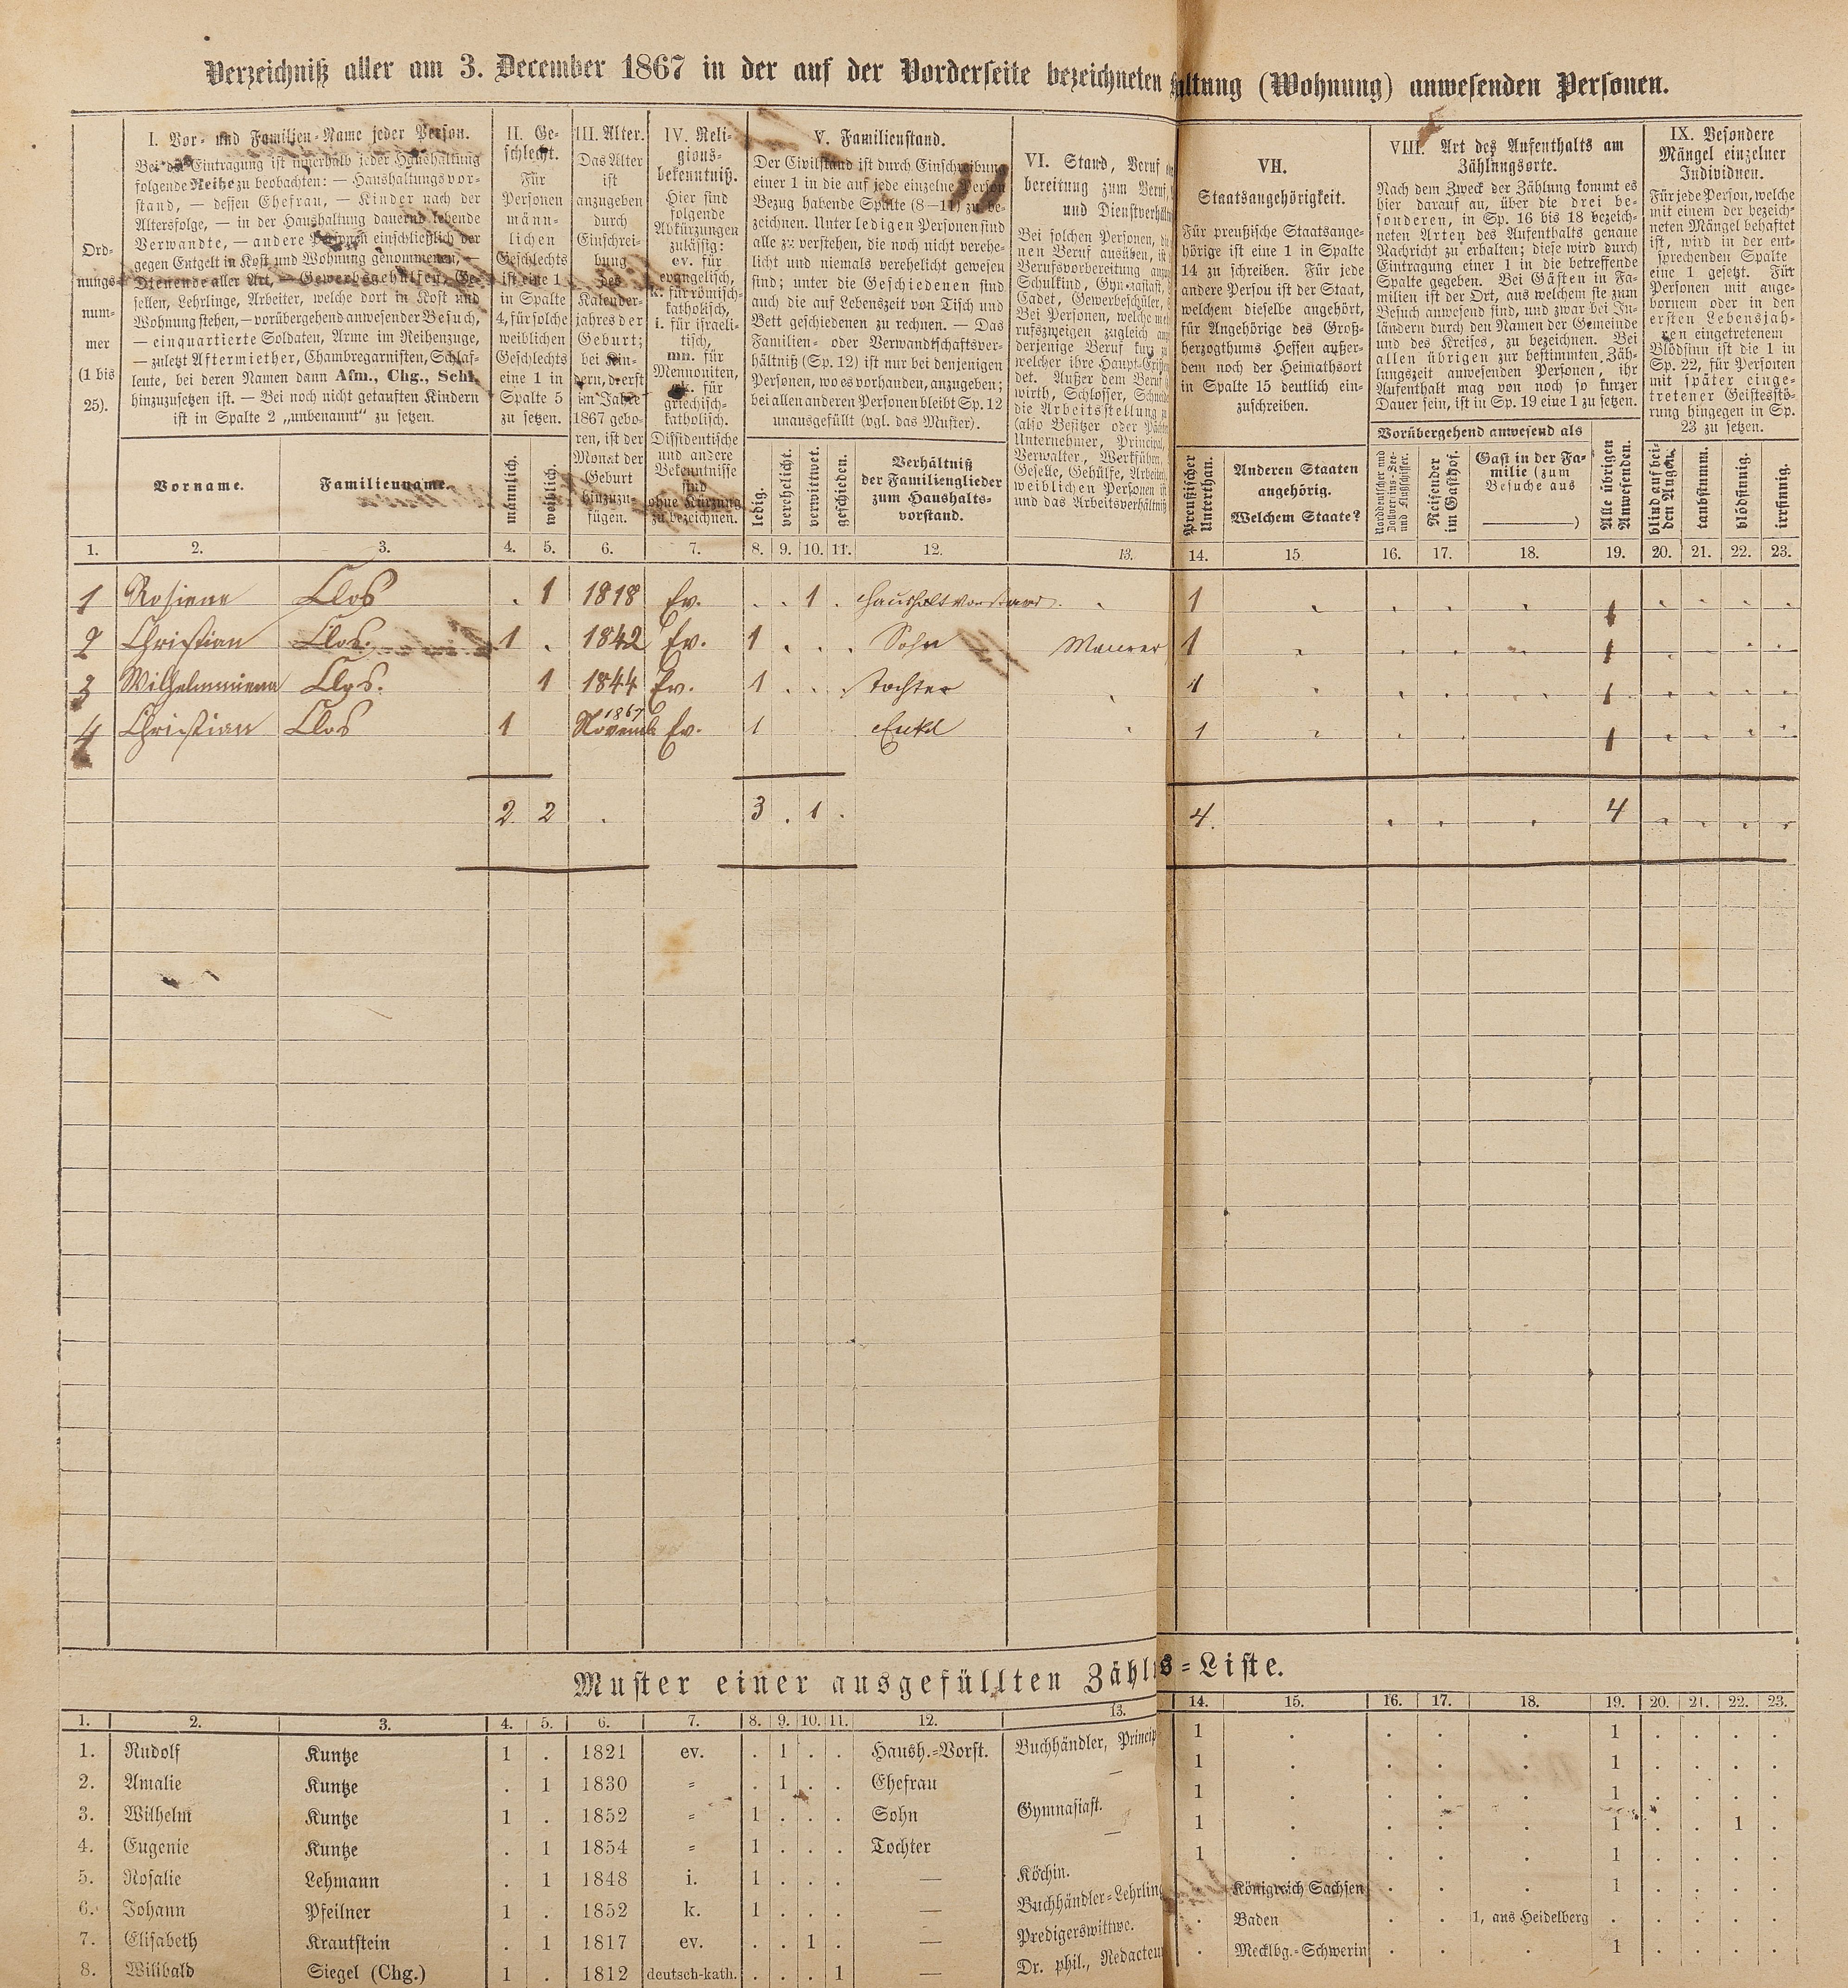 Verzeichniß aller am 3. December 1867 in der auf der Vorderseite bezeichneten haltung (Wohnung) anwesenden Personen.
Ord-
nungs-
num-
mer
(1 bis
25).
I. Vor- und Familien-Name jeder Person.
Bei der Eintragung ist innerhalb jeder Haushaltung
folgende Reihe zu beobachten: — Haushaltungsvor-
stand, — dessen Ehefrau, — Kinder nach der
Altersfolge, — in der Haushaltung dauernd lebende
Verwandte, — andere Personen einschließlich der
gegen Entgelt in Kost und Wohnung genommenen, —
Dienende aller Art, — Gewerbsgehülfen, Ge-
sellen, Lehrlinge, Arbeiter, welche dort in Kost und
Wohnung stehen, — vorübergehend anwesender Besuch,
— einquartierte Soldaten, Arme im Reihenzuge,
— zuletzt Aftermiether, Chambregarnisten, Schlaf-
leute, bei deren Namen dann Afm., Chg., Schl.
hinzuzusetzen ist. — Bei noch nicht getauften Kindern
ist in Spalte 2 „unbenannt“ zu setzen.
Vorname.
Familienname.
II. Ge-
schlecht.
Für
Personen
männ-
lichen
Geschlechts
ist eine 1
in Spalte
4, für solche
weiblichen
Geschlechts
eine 1 in
Spalte 5
zu setzen.
männlich.
weiblich.
III. Alter.
Das Alter
ist
anzugeben
durch
Einschrei-
bung
des
Kalender-
jahres der
Geburt;
bei Kin-
dern, die erst
im Jahre
1867 gebo-
ren, ist der
Monat der
Geburt
hinzuzu-
fügen.
IV. Reli-
gions-
bekenntniß.
Hier sind
folgende
Abkürzungen
zulässig:
ev. für
evangelisch,
k. für römisch-
katholisch,
i. für israeli-
tisch,
mn. für
Mennoniten,
gk. für
griechisch-
katholisch.
Dissidentische
und andere
Bekenntnisse
sind
ohne Kürzung
zu bezeichnen.
V. Familienstand.
Der Civilstand ist durch Einschreibung
einer 1 in die auf jede einzelne Person
Bezug habende Spalte (8—11) zu be-
zeichnen. Unter ledigen Personen sind
alle zu verstehen, die noch nicht verehe-
licht und niemals verehelicht gewesen
sind; unter die Geschiedenen sind
auch die auf Lebenszeit von Tisch und
Bett geschiedenen zu rechnen. — Das
Familien- oder Verwandtschaftsver-
hältniß (Sp. 12) ist nur bei denjenigen
Personen, wo es vorhanden, anzugeben;
bei allen anderen Personen bleibt Sp. 12
unausgefüllt (vgl. das Muster).
ledig.
verehelicht.
verwittwet.
geschieden.
Verhältniß
der Familienglieder
zum Haushalts-
vorstand.
VI. Stand, Beruf
bereitung zum Beruf,
und Dienstverhältn
Bei solchen Personen,
nen Beruf ausüben, ist
Berufsvorbereitung
Schulkind, Gymnasiast,
Cadet, Gewerbeschüler,
Bei Personen, welche
rufszweigen zugleich
derjenige Beruf kurz
welcher ihre Haupt-Exist
det. Außer dem Beruf
wirth, Schlosser, Schneid
die Arbeitsstellung
(also Besitzer oder Päch
Unternehmer, Principal,
Verwalter, Werkführ.
Geselle, Gehülfe, Arbeit
weiblichen Personen
und das Arbeitsverhältniß
VII.
Staatsangehörigkeit.
Für preußische Staatsange-
hörige ist eine 1 in Spalte
14 zu schreiben. Für jede
andere Person ist der Staat,
welchem dieselbe angehört,
für Angehörige des Groß-
herzogthums Hessen außer-
dem noch der Heimathsort
in Spalte 15 deutlich ein-
zuschreiben.
Preußischer
Unterthan.
Anderen Staaten
angehörig.
Welchem Staate?
VIII. Art des Aufenthalts am
Zählungsorte.
Nach dem Zweck der Zählung kommt es
hier darauf an, über die drei be-
sonderen, in Sp. 16 bis 18 bezeich-
neten Arten des Aufenthalts genaue
Nachricht zu erhalten; diese wird durch
Eintragung einer 1 in die betreffende
Spalte gegeben. Bei Gästen in Fa-
milien ist der Ort, aus welchem sie zum
Besuch anwesend sind, und zwar bei In-
ländern durch den Namen der Gemeinde
und des Kreises, zu bezeichnen. Bei
allen übrigen zur bestimmten Zäh-
lungszeit anwesenden Personen, ihr
Aufenthalt mag von noch so kurzer
Dauer sein, ist in Sp. 19 eine 1 zu setzen.
Vorübergehend anwesend als
Norddeutscher und
Zollvereins-See-
und Flußschiffer.
Reisender
im Gasthof.
Gast in der Fa-
milie (zum
Besuche aus
———)
Alle übrigen
Anwesenden.
IX. Besondere
Mängel einzelner
Individuen.
Für jede Person, welche
mit einem der bezeich-
neten Mängel behaftet
ist, wird in der ent-
sprechenden Spalte
eine 1 gesetzt. Für
Personen mit ange-
bornem oder in den
ersten Lebensjah-
ren eingetretenem
Blödsinn ist die 1 in
Sp. 22, für Personen
mit später einge-
tretener Geistesstö-
rung hingegen in Sp.
23 zu setzen.
blind auf bei-
den Augen.
taubstumm.
blödsinnig.
irrsinnig.
1. 2. 3. 4. 5. 6. 7. 8. 9. 10. 11. 12. 13. 14. 15. 16. 17. 18. 19. 20. 21. 22. 23.
1 Rosiene Clos . 1 1818 Ev. . . 1 . Haushaltvorstand . 1 . . . . 1 . . . .
2 Christian Clos. 1 . 1842 Ev. 1 . . . Sohn Maurer 1 . . . . 1 . . . .
3 Wilhelmmiena Clos. 1 1844 Ev. 1 . . . Tochter . 1 . . . . 1 . . . .
4 Christian Clos 1 1867 Novemb Ev. 1 Enkel . 1 . . . 1 . . . .
2 2 . 3 . 1 . 4. . . . 4 . . . .
Muster einer ausgefüllten Zähl s-Liste.
1. 2. 3. 4. 5. 6. 7. 8. 9. 10. 11. 12. 13. 14. 15. 16. 17. 18. 19. 20. 21. 22. 23.
1. Rudolf Kuntze 1 . 1821 ev. . 1 . . Haush.-Vorst. Buchhändler, Princip 1 . . . . 1 . . . .
2. Amalie Kuntze . 1 1830 = . 1 . . Ehefrau — 1 . . . . 1 . . . .
3. Wilhelm Kuntze 1 . 1852 = 1 . . . Sohn Gymnasiast. 1 . . . . 1 . . . .
4. Eugenie Kuntze . 1 1854 = 1 . . . Tochter — 1 . . . . 1 . . 1 .
5. Rosalie Lehmann . 1 1848 i. 1 . . . — Köchin. 1 . . . . 1 . . . .
6. Johann Pfeilner 1 . 1852 k. 1 . . . — Buchhändler-Lehrling . Königreich Sachsen . . . 1 . . . .
7. Elisabeth Krautstein . 1 1817 ev. . . 1 . — Predigerswittwe. . Baden . . 1, aus Heidelberg . . . . .
8. Wilibald Siegel (Chg.) 1 . 1812 deutsch-kath. . . . 1 — Dr. phil., Redacteur . Mecklbg.-Schwerin . . . 1 . . . .